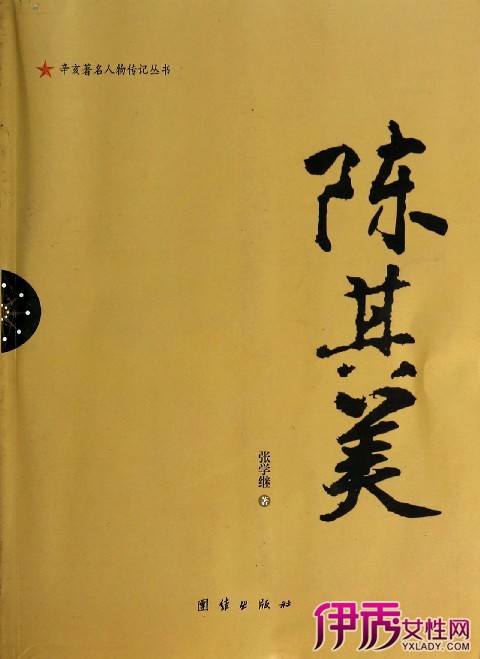 辛亥著名人物传记丛书
陈其美
张学继 著
团结出版社
伊秀女性网
YXLADY.COM